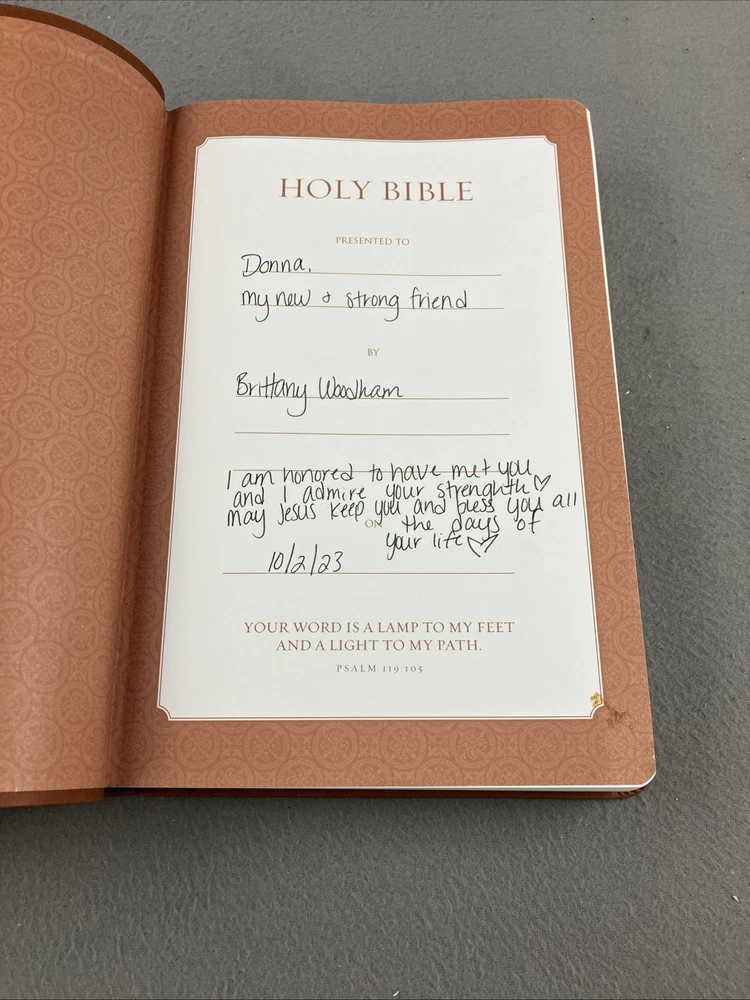 HOLY BIBLE
PRESENTED TO
Donna,
my new & strong friend
BY
Brittany Woodham
I am honored to have met you
and I admire your strenghth ♡
may Jesus keep you and bless you all
ON the days of
your life ♡
10/2/23
YOUR WORD IS A LAMP TO MY FEET
AND A LIGHT TO MY PATH.
PSALM 119:105